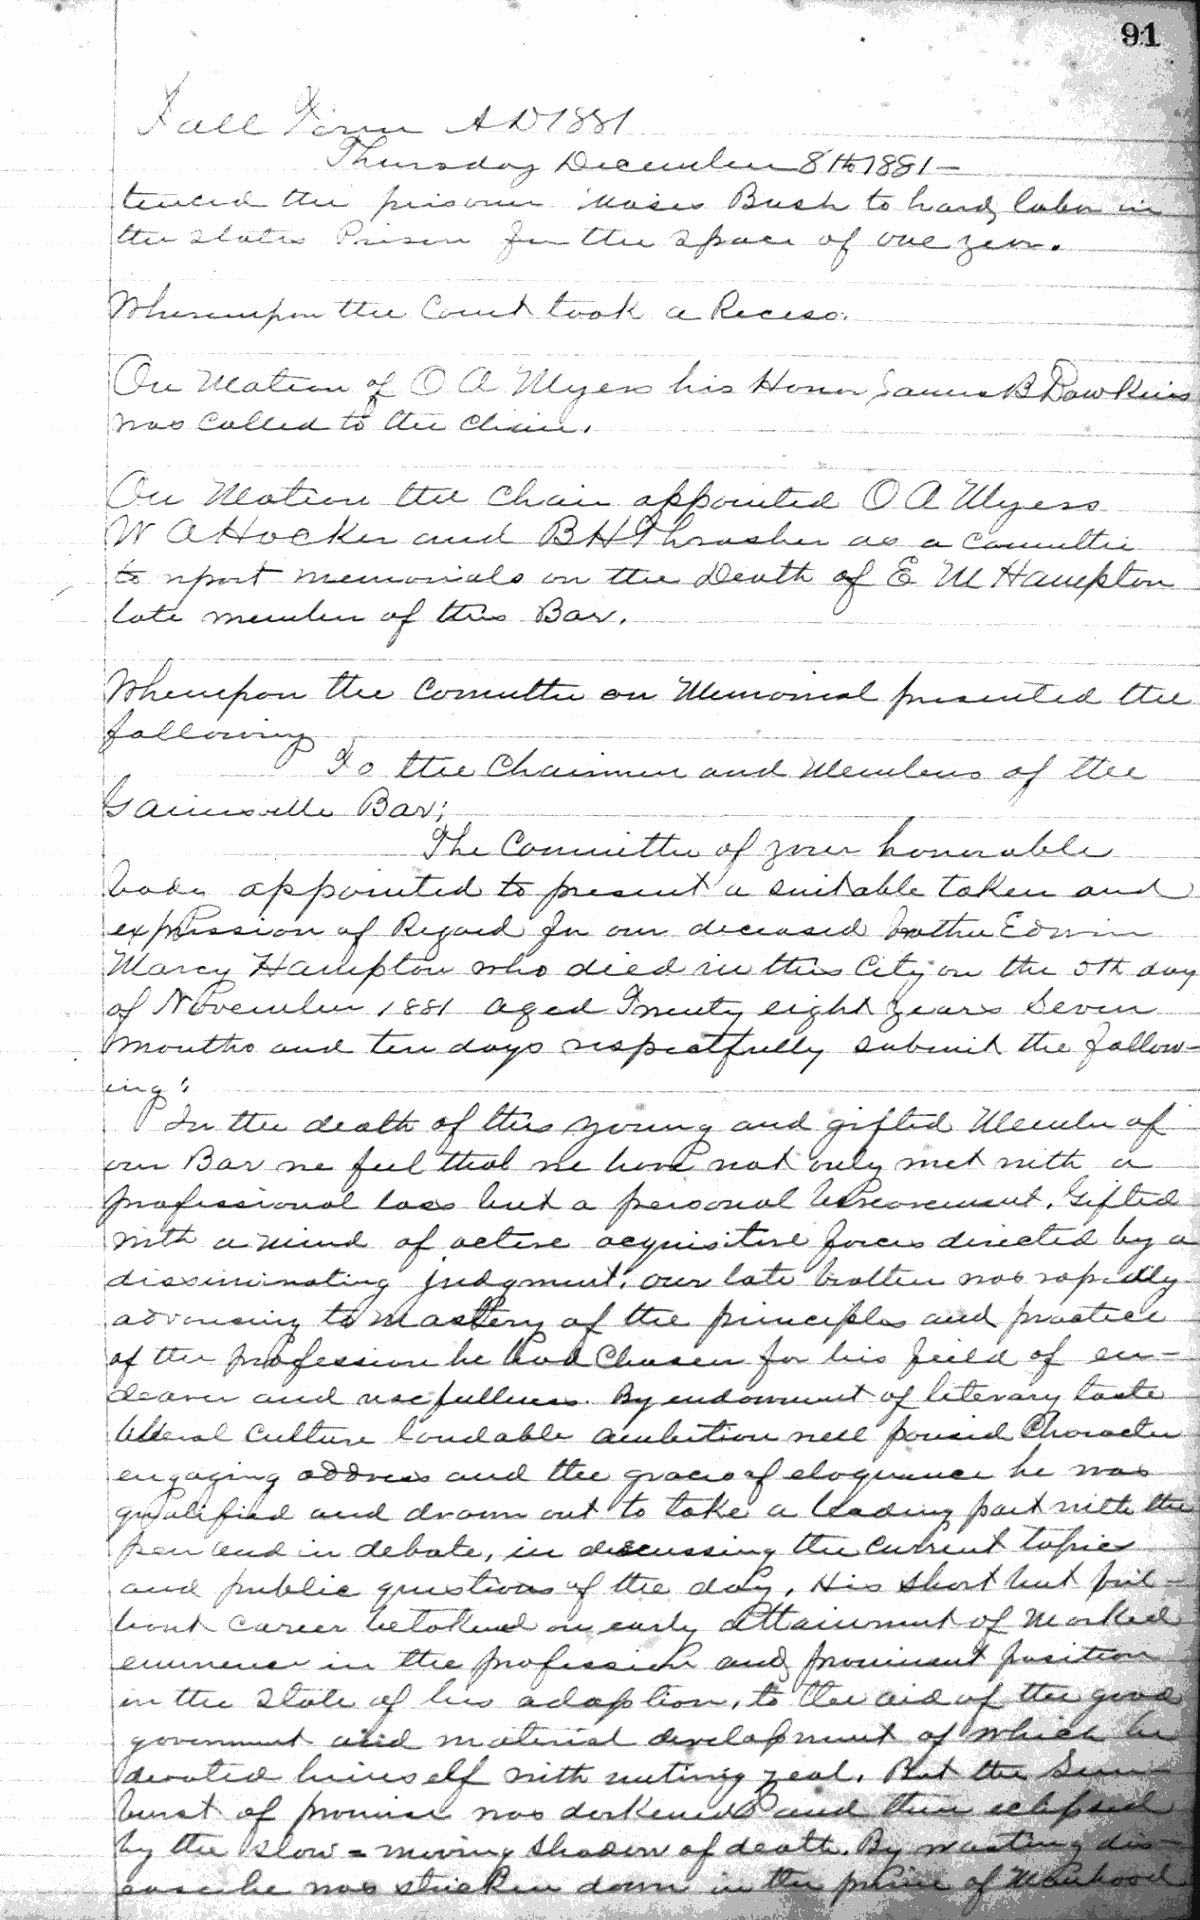 91
Fall Term A D 1881
Thursday December 8th 1881 –
tenced the prisoner Moses Bush to hard labor in
the States Prison for the space of one year.
Whereupon the Court took a Recess.
On Motion of O A Myers his Honor James B Dawkins
was called to the chair.
On Motion the chair appointed O A Myers
W A Hocker and B H Thrasher as a committee
to report memorials on the Death of E M Hampton
late member of this Bar.
Whereupon the Committee on Memorial presented the
following
To the Chairmen and Members of the
Gainesville Bar;
The Committee of your honorable
body appointed to present a suitable token and
expression of Regard for our deceased brother Edwin
Marcy Hampton who died in this City on the 5th day
of November 1881 aged Twenty eight years Seven
months and ten days respectfully submit the follow-
ing:
In the death of this young and gifted Member of
our Bar we feel that we have not only met with a
professional loss but a personal bereavement. Gifted
with a mind of active acquisitive forces directed by a
discriminating judgment. our late brother was rapidly
advancing to mastery of the principles and practice
of the profession he had Chosen for his field of en-
deavor and usefullness. By endowment of literary taste
liberal culture laudable ambition well poised Character
engaging address and the graces of eloquence he was
qualified and drawn out to take a leading part with the
pen and in debate, in discussing the current topics
and public questions of the day. His short but bril-
liant career betokened an early attainment of marked
eminence in the profession and prominent position
in the State of his adoption, to the aid of the good
government and material development of which he
devoted himself with untiring zeal. But the Sun-
burst of promise was darkened and then eclipsed
by the slow = moving shadow of death. By wasting dis-
ease he was stricken down in the prime of Manhood